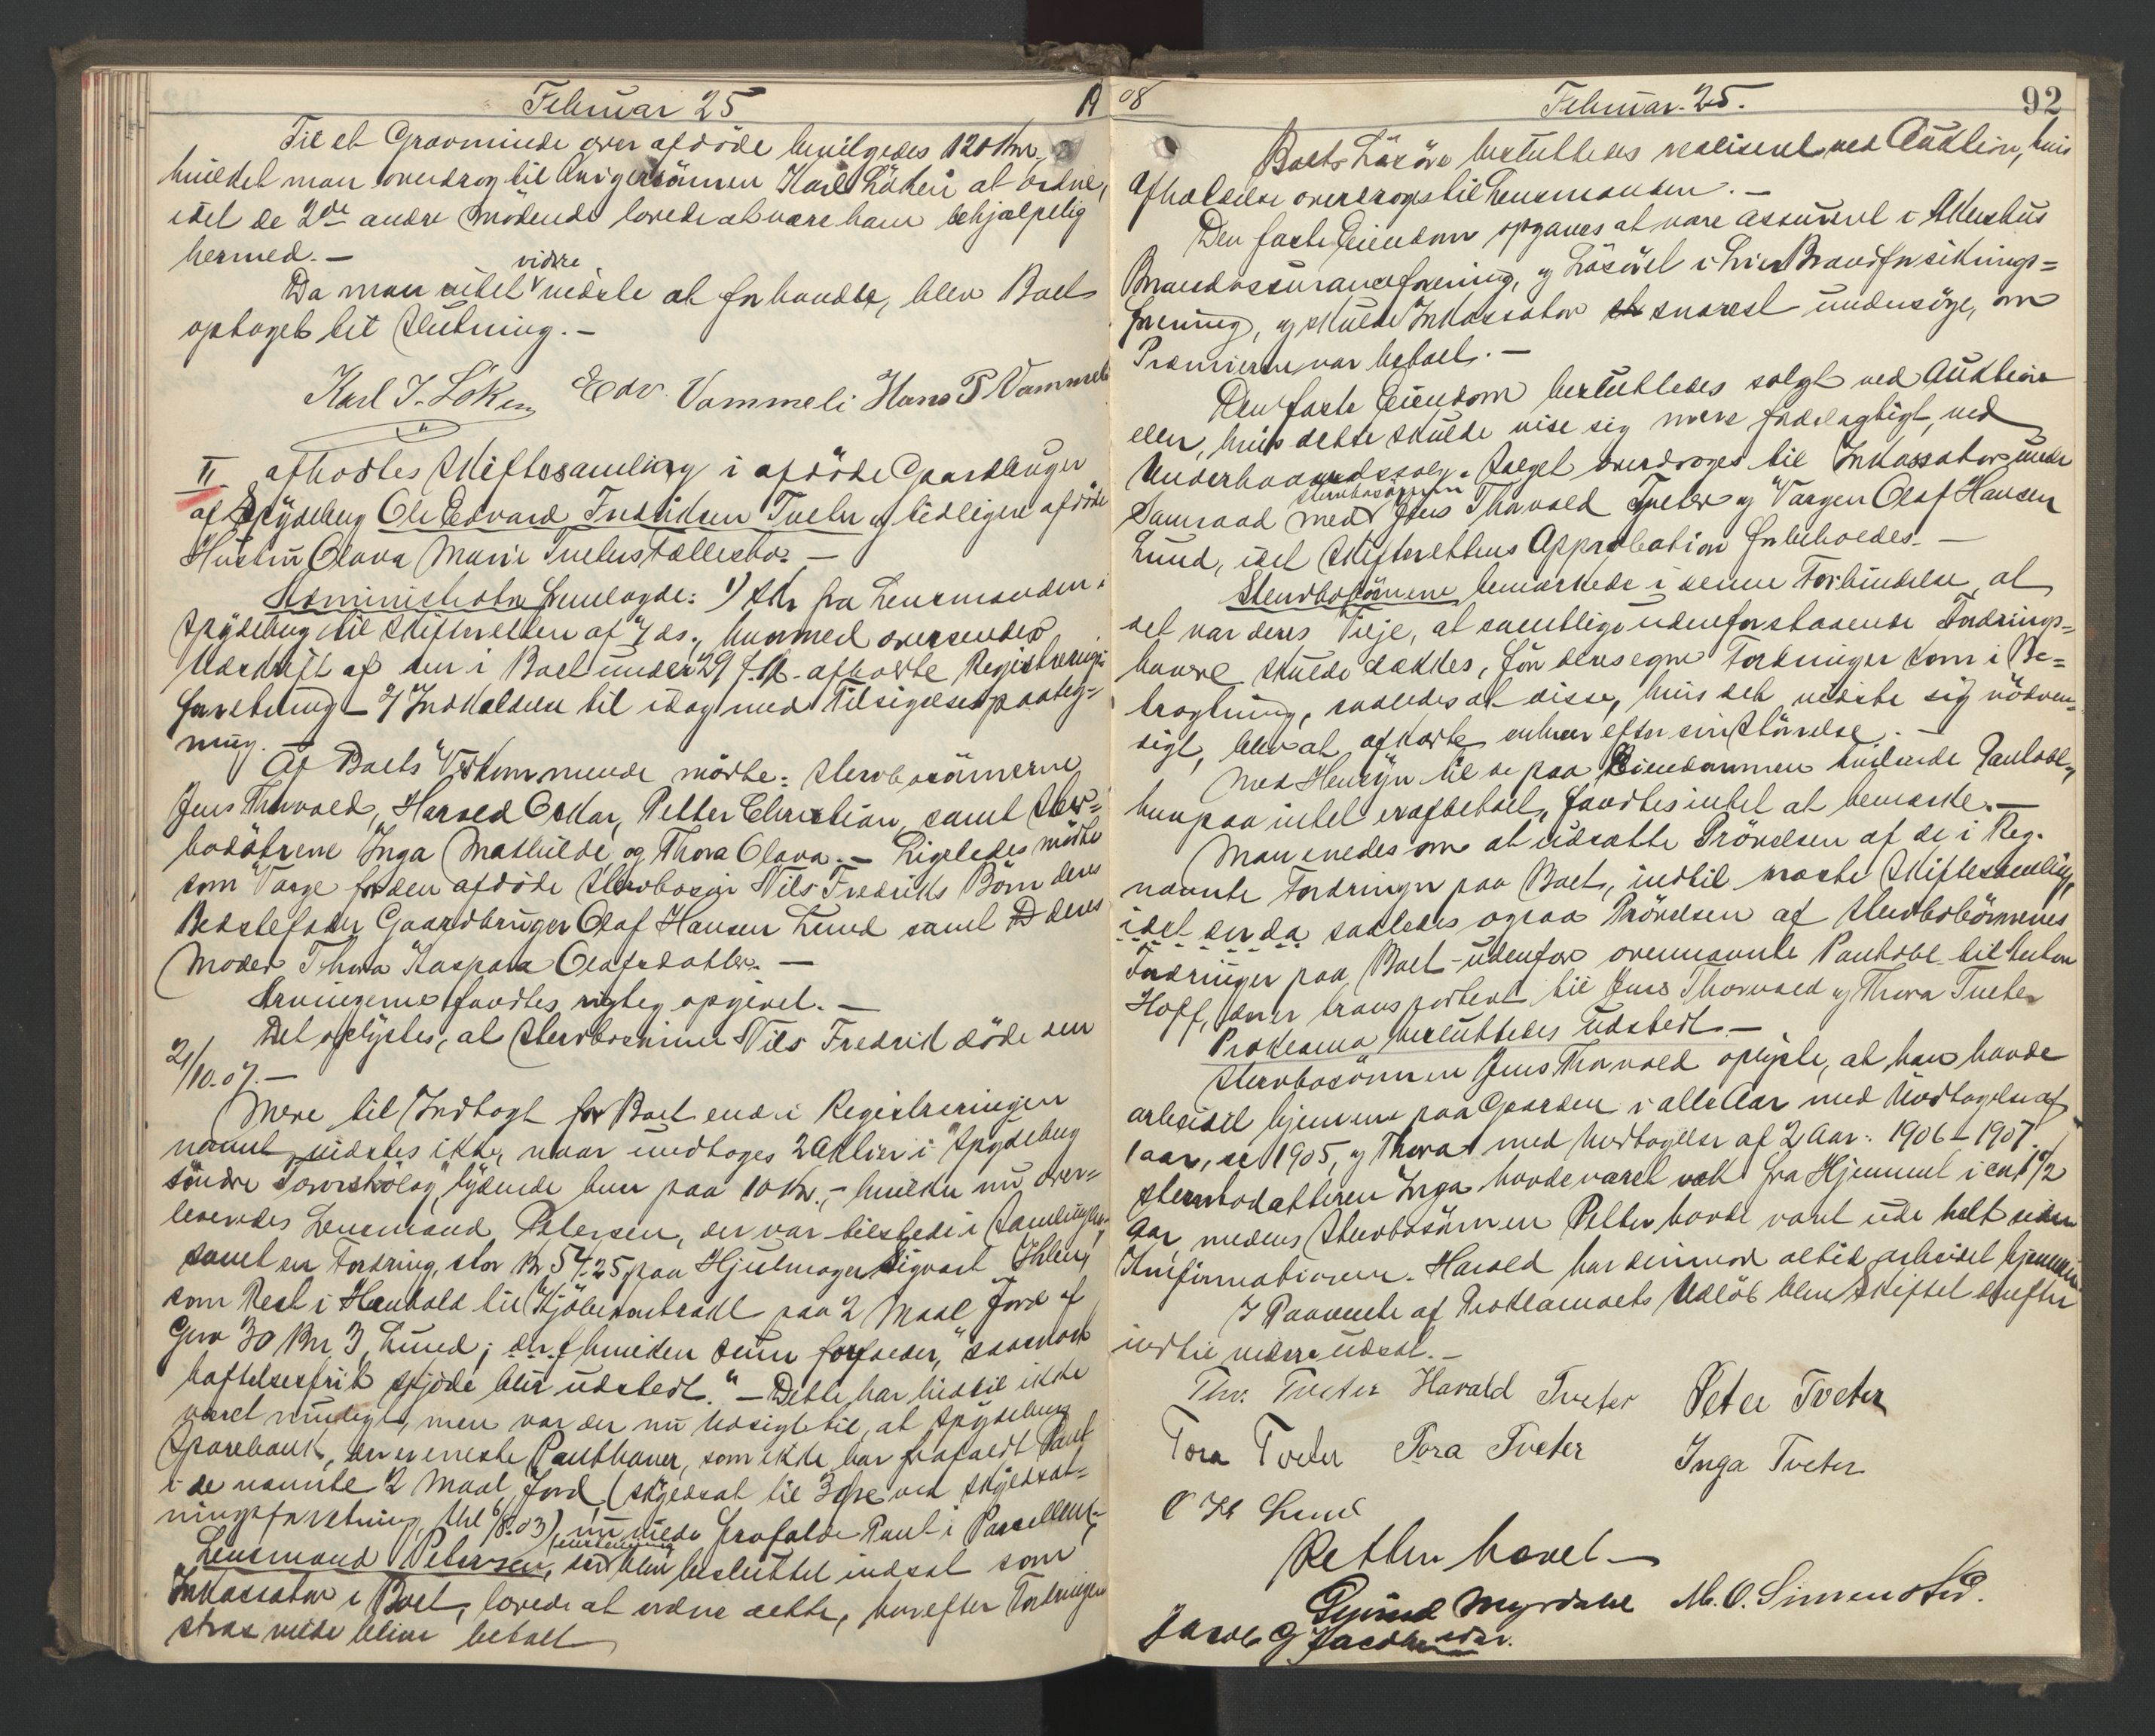 Februar 25
19
Til et Gravminde over afdöde bevilgedes 120 Kr.
hvildet man overdrog til Svigersönnen Karl Löken at ordne,
idet de 2de andre Mödende lovede at være ham behjælpelig
hermed. —
vidre
Da man intet vidste at forhandle, blev Boet
optaget til Slutning. —
Karl J. Löken Edv. Vammeli Hans P Vammeli
II afholdtes Skiftesamling i afdöde Gaardbruger
af Spydeberg Ole Edvard Fredriksen Tveter og tidligere afdöde
Hustru Olava Marie Tveters Fællesbo. —
Administrator fremlagde: 1) Skr fra Lensmanden i
Spydeberg til Skifteretten af ds., hvormed oversendes
Udskrift af den i Boet under 29 f. M. afholdte Registrerings
forretning — 2/ Indkaldelse til idag med Tilsigelsespaateg-
ning. —
Af Boets Vedkommende mödte: Stervbosönnerne
Jens Thorvald, Harald Oskar, Petter Christian, samt Sterv-
bodötrene Inga Mathilde og Thora Olava. — Ligeledes mödte
som Værge for den afdöde Stervbosön Nils Fredriks Börn deres
Bedstefader Gaardbruger Olaf Hansen Lund samt deres
Moder Thora Kaspara Olafsdatter. —
Arvingerne fandtes rigtig opgivet. —
Det oplystes, at Stervbosönnen Nils Fredrik döde den
21/10.07. —
Mere til Indtægt for Boet end i Registreringen
nævnt, vidstes ikke, naar undtages 2 Aktier i Spydeberg
söndre lydende hver paa 10 Kr., — hvilke nu over-
leveredes Lensmand Petersen, der var tilstede i Samlingen,
samt en Fordring, stor Kr 54.25 paa Hjulmager Sigvart Ihlen,
som Rest i Henhold til Kjöbekontrakt paa 2 Maal Jord af
Gno 30 Bn 3, Lund; hvilken Sum forfalder, "saasnart
haftelsesfrit Skjöde blir udstedt." — Dette har hidtil ikke
været muligt, men var der nu Udsigt til, at Spydeberg
Sparebank, der er eneste Panthaver, som ikke har frafaldt Pant
i de nævnte 2 Maal Jord (skyldsat til 3 Öre ved Skyldsæt-
ningsforretning, thl 6/8.03), nu vilde frafalde Pant i Parcellen. —
Lensmand Petersen, der blev besluttet indsat som
Inkassator i Boet, lovede at ordne dette, hvorefter Fordringen
strax vilde blive betalt
08
Februar. 25.
92
Boets Lösöre besluttedes realiseret ved Auktion, hvis
Afholdelse overdroges til Lensmanden. —
Den faste Eiendom opgaves at være assureret i Akershus
Brandassuranceforening, og Lösöret i Brandforsikrings-
forening, og skulde Inkassator snarest undersöge, om
Præmierne var betalt. —
Den faste Eiendom besluttedes solgt ved Auktion
eller, hvis dette skulde vise sig mere fordelagtigt, ved
Underhaandssalg. Salget overdroges til Inkassator under
stervbosönnen
Samraad med Jens Thorvald Tveter og Værgen Olaf Hansen
Lund, idet Skifterettens Approbation forbeholdes. —
Stervbosönnene bemærkede i denne Forbindelse, at
det var deres Vilje, at samtlige udenforstaaende Fordrings-
havere skulde dækkes, för deres egne Fordringer kom i Be-
tragtning, saaledes at disse, hvis det viste sig nödven-
digt, blev at afkorte enhver efter sin Störrelse. —
Med Hensyn til de paa Eiendommen hvilende Panteobl.,
hvorpaa intet er afbetalt, fandtes intet at bemærke. —
Man enedes om at udsætte Prövelsen af de i Reg.
nævnte Fordringer paa Boet, indtil næste Skiftesamling,
idet der da saaledes ogsaa Prövelsen af Stervbobörnenes
Fordringer paa Boet — udenfor ovennævnte Panteobl. til Anton
Hoff, der er transporteret til Jens Thorvald og Thora Tveter
Proklama besluttedes udstedt. —
Stervbosönnen Jens Thorvald oplyste, at han havde
arbeidet hjemme paa Gaarden i alle Aar med Undtagelse af
1 aar, ae 1905, og Thora med Undtagelse af 2 Aar: 1906—1907.
Stervbodatteren Inga havde været væk fra Hjemmet i ca 1 1/2
Aar, medens Stervbosönnen Petter havde været ude helt siden
Konfirmationen. Harald har derimod altid arbeidet hjemme
I Paavente af Proklamaets Udlöb blev Skiftet derefter
indtil videre udsat. —
Thv. Tveter Harald Tveter Peter Tveter
Tora Tveter Tora Tveter Inga Tveter
O H Lund
Retten hævet —
Myrdahl M. O. Simenstad.
Jacob G Jacobsen